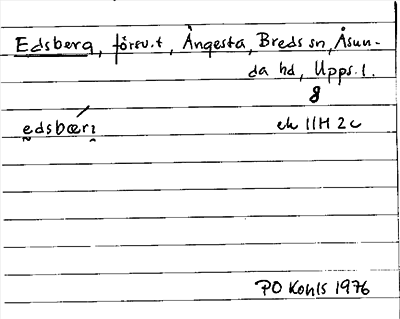 Edsberg, försv.t, Ängesta, Breds sn, Åsun-
da hd, Upps.l.
8
ḛdsbærı̯
ek 11H 2c
PO Kohls 1976